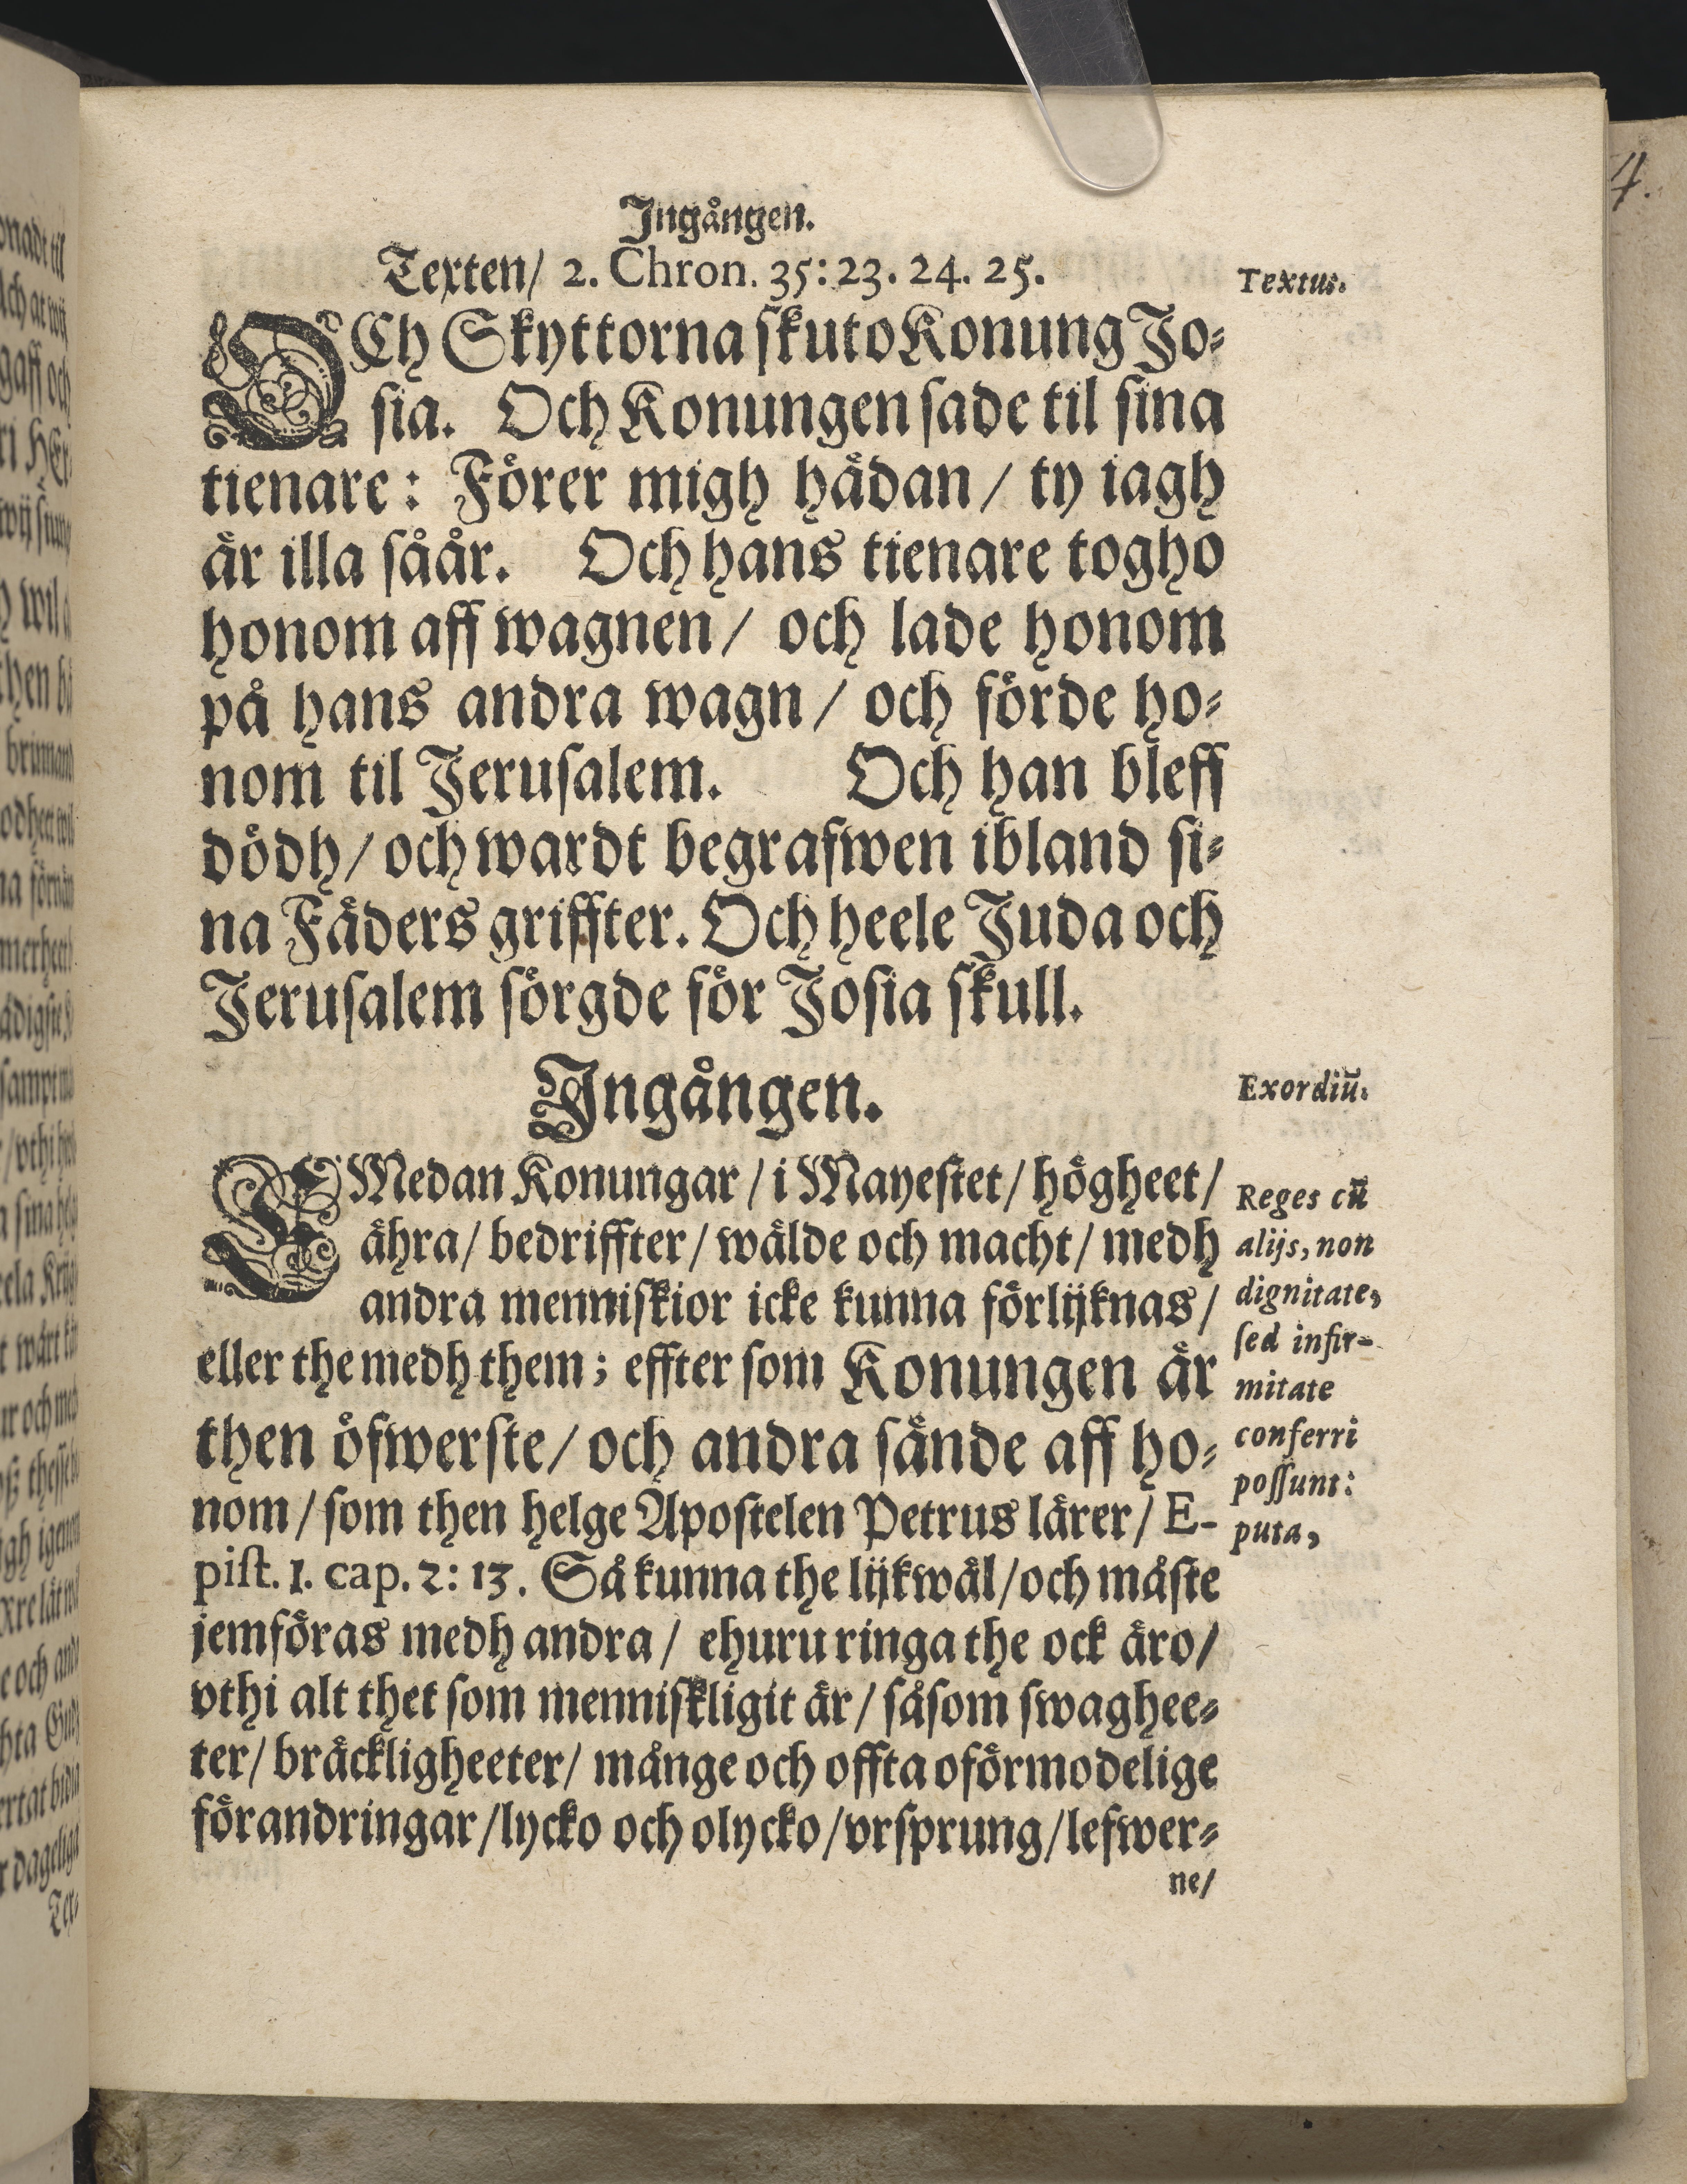 Ingången.
Texten/ 2. Chron. 35:23. 24. 25.
Textus.
OCh Skyttorna skuto Konung Jo-
sia. Och Konungen sade til sina
tienare: Förer migh hädan/ ty iagh
är illa såår. Och hans tienare togho
honom aff wagnen/ och lade honom
på hans andra wagn/ och förde ho-
nom til Jerusalem. Och han bleff
dödh/ och wardt begrafwen ibland si-
na Fäders griffter. Och heele Juda och
Jerusalem sörgde för Josia skull.
Ingången.
Exordiū.
EMedan Konungar/ i Mayestet/ högheet/
ähra/ bedriffter/ wälde och macht/ medh
andra menniskior icke kunna förlijknas/
eller the medh them; effter som Konungen är
then öfwerste/ och andra sände aff ho-
nom/ som then helge Apostelen Petrus lärer/ E-
pist. 1. cap. 2: 13. Så kunna the lijkwäl/ och måste
jemföras medh andra/ ehuru ringa the ock äro/
vthi alt thet som menniskligit är/ såsom swaghee-
ter/ bräckligheeter/ månge och offta oförmodelige
förandringar/ lycko och olycko/ vrsprung/ lefwer-
ne/
Reges cū
alijs, non
dignitate,
sed infir-
mitate
conferri
possunt:
puta,
4.